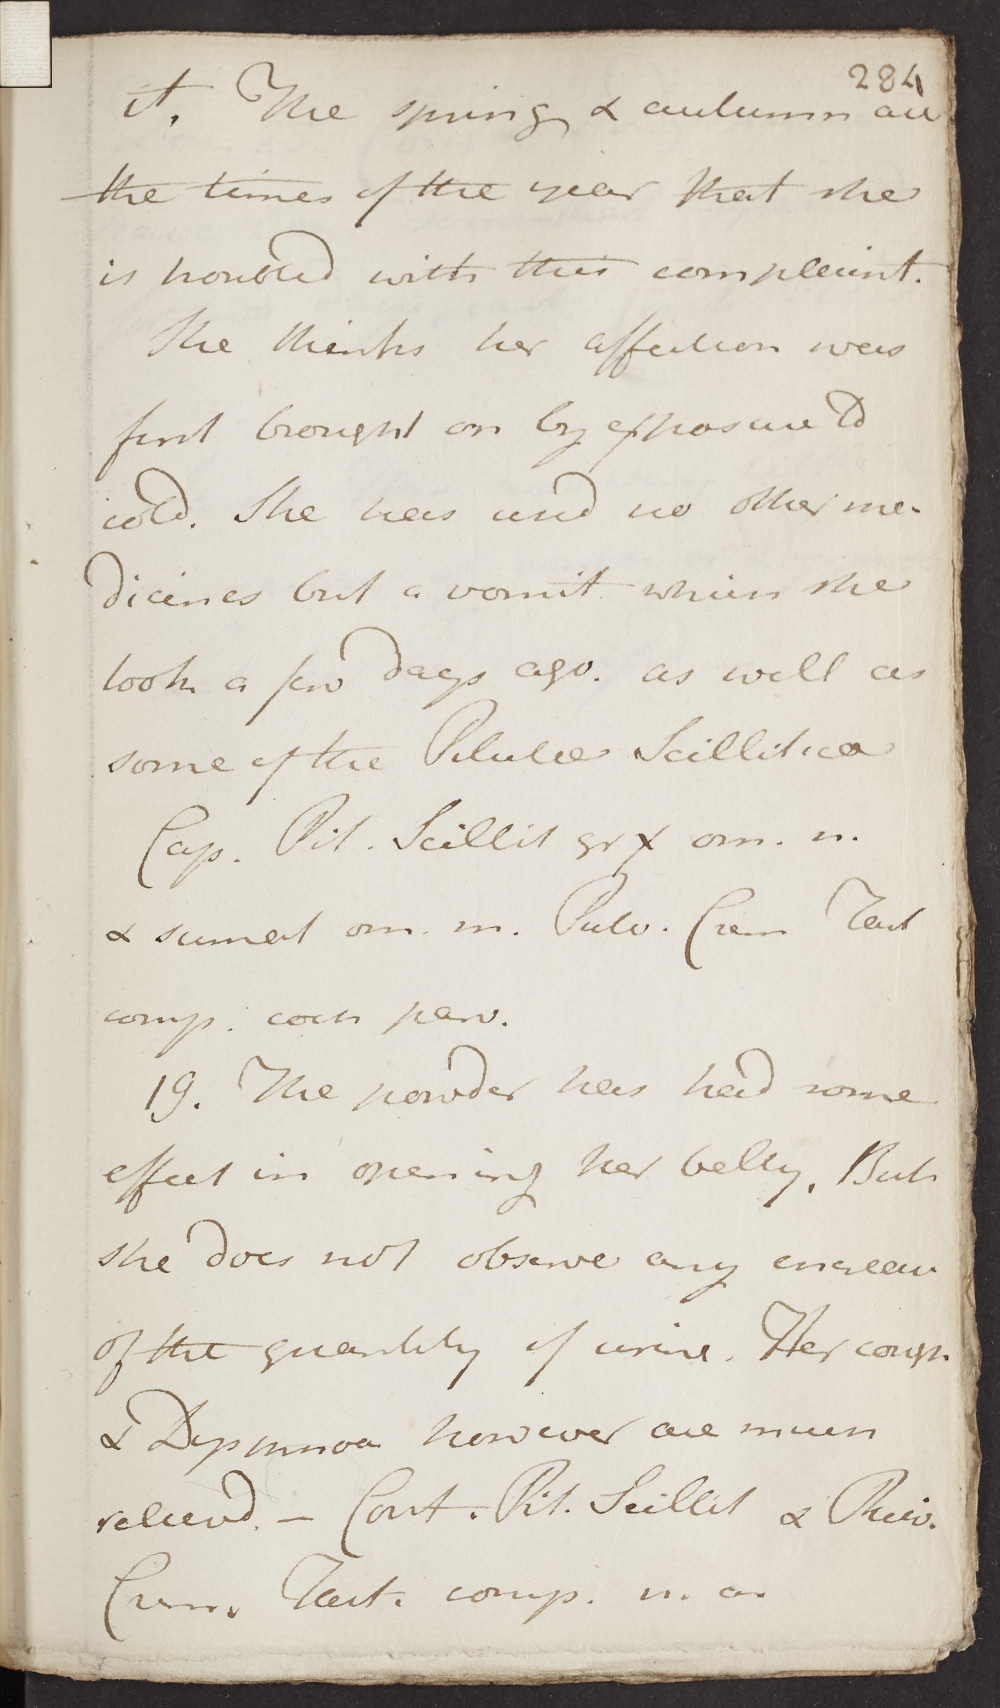 284
it. The spring & autumn are
the times of the year that she
is troubled with this complaint.
She thinks her affection was
first brought on by exposure to
cold. She has used no other me-
dicines but a vomit which she
took a few days ago. as well as
some of the Pilulæ Scilliticæ
Cap. Pil. Scillit gr x om. n.
& sumat om. m. Pulv. Crem Tart
comp. coch parv.
19. The powder has had some
effect in opening her belly, But
she does not observe any increase
of the quantity of urine. Her cough
& Dyspnnoa however are much
relievd. – Cont. Pil. Scillit & Pulv.
Crem. Tart. comp. u. a